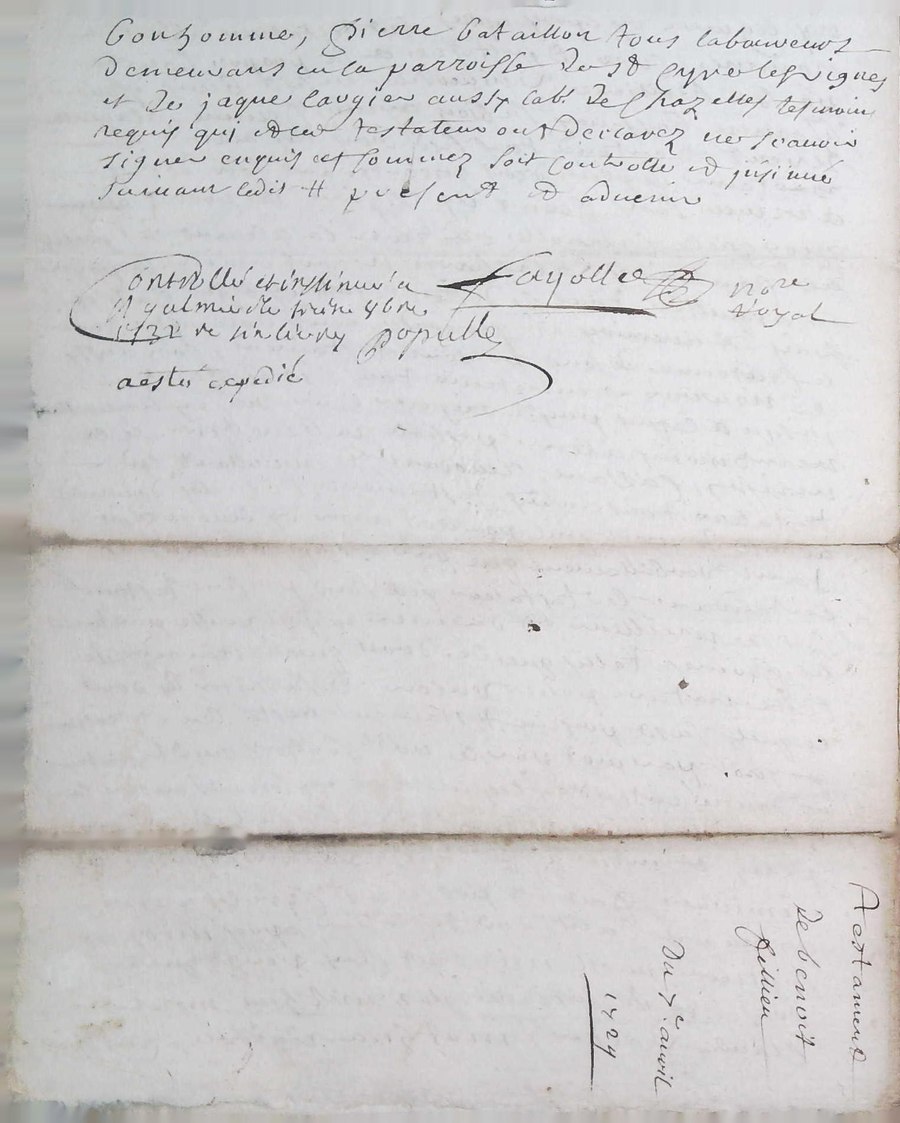 bonhomme, Pierre bataillon tous laboureurs
demeurans en la parroisse de st Cyre les vignes
et de jaque laugier aussy lab. de Chazelles tesmoins
requis qui et led testateur ont declarez ne scavoir
signer enquis et sommez soit controllé et jnsinué
suivant ledit # present et advenir
Controllé et insinué a
St galmier le
1731 re six livres populle
Fayolle nore
royal
a esté expedié
Testament
de benoit
fillieu
Du 7e avril
1729